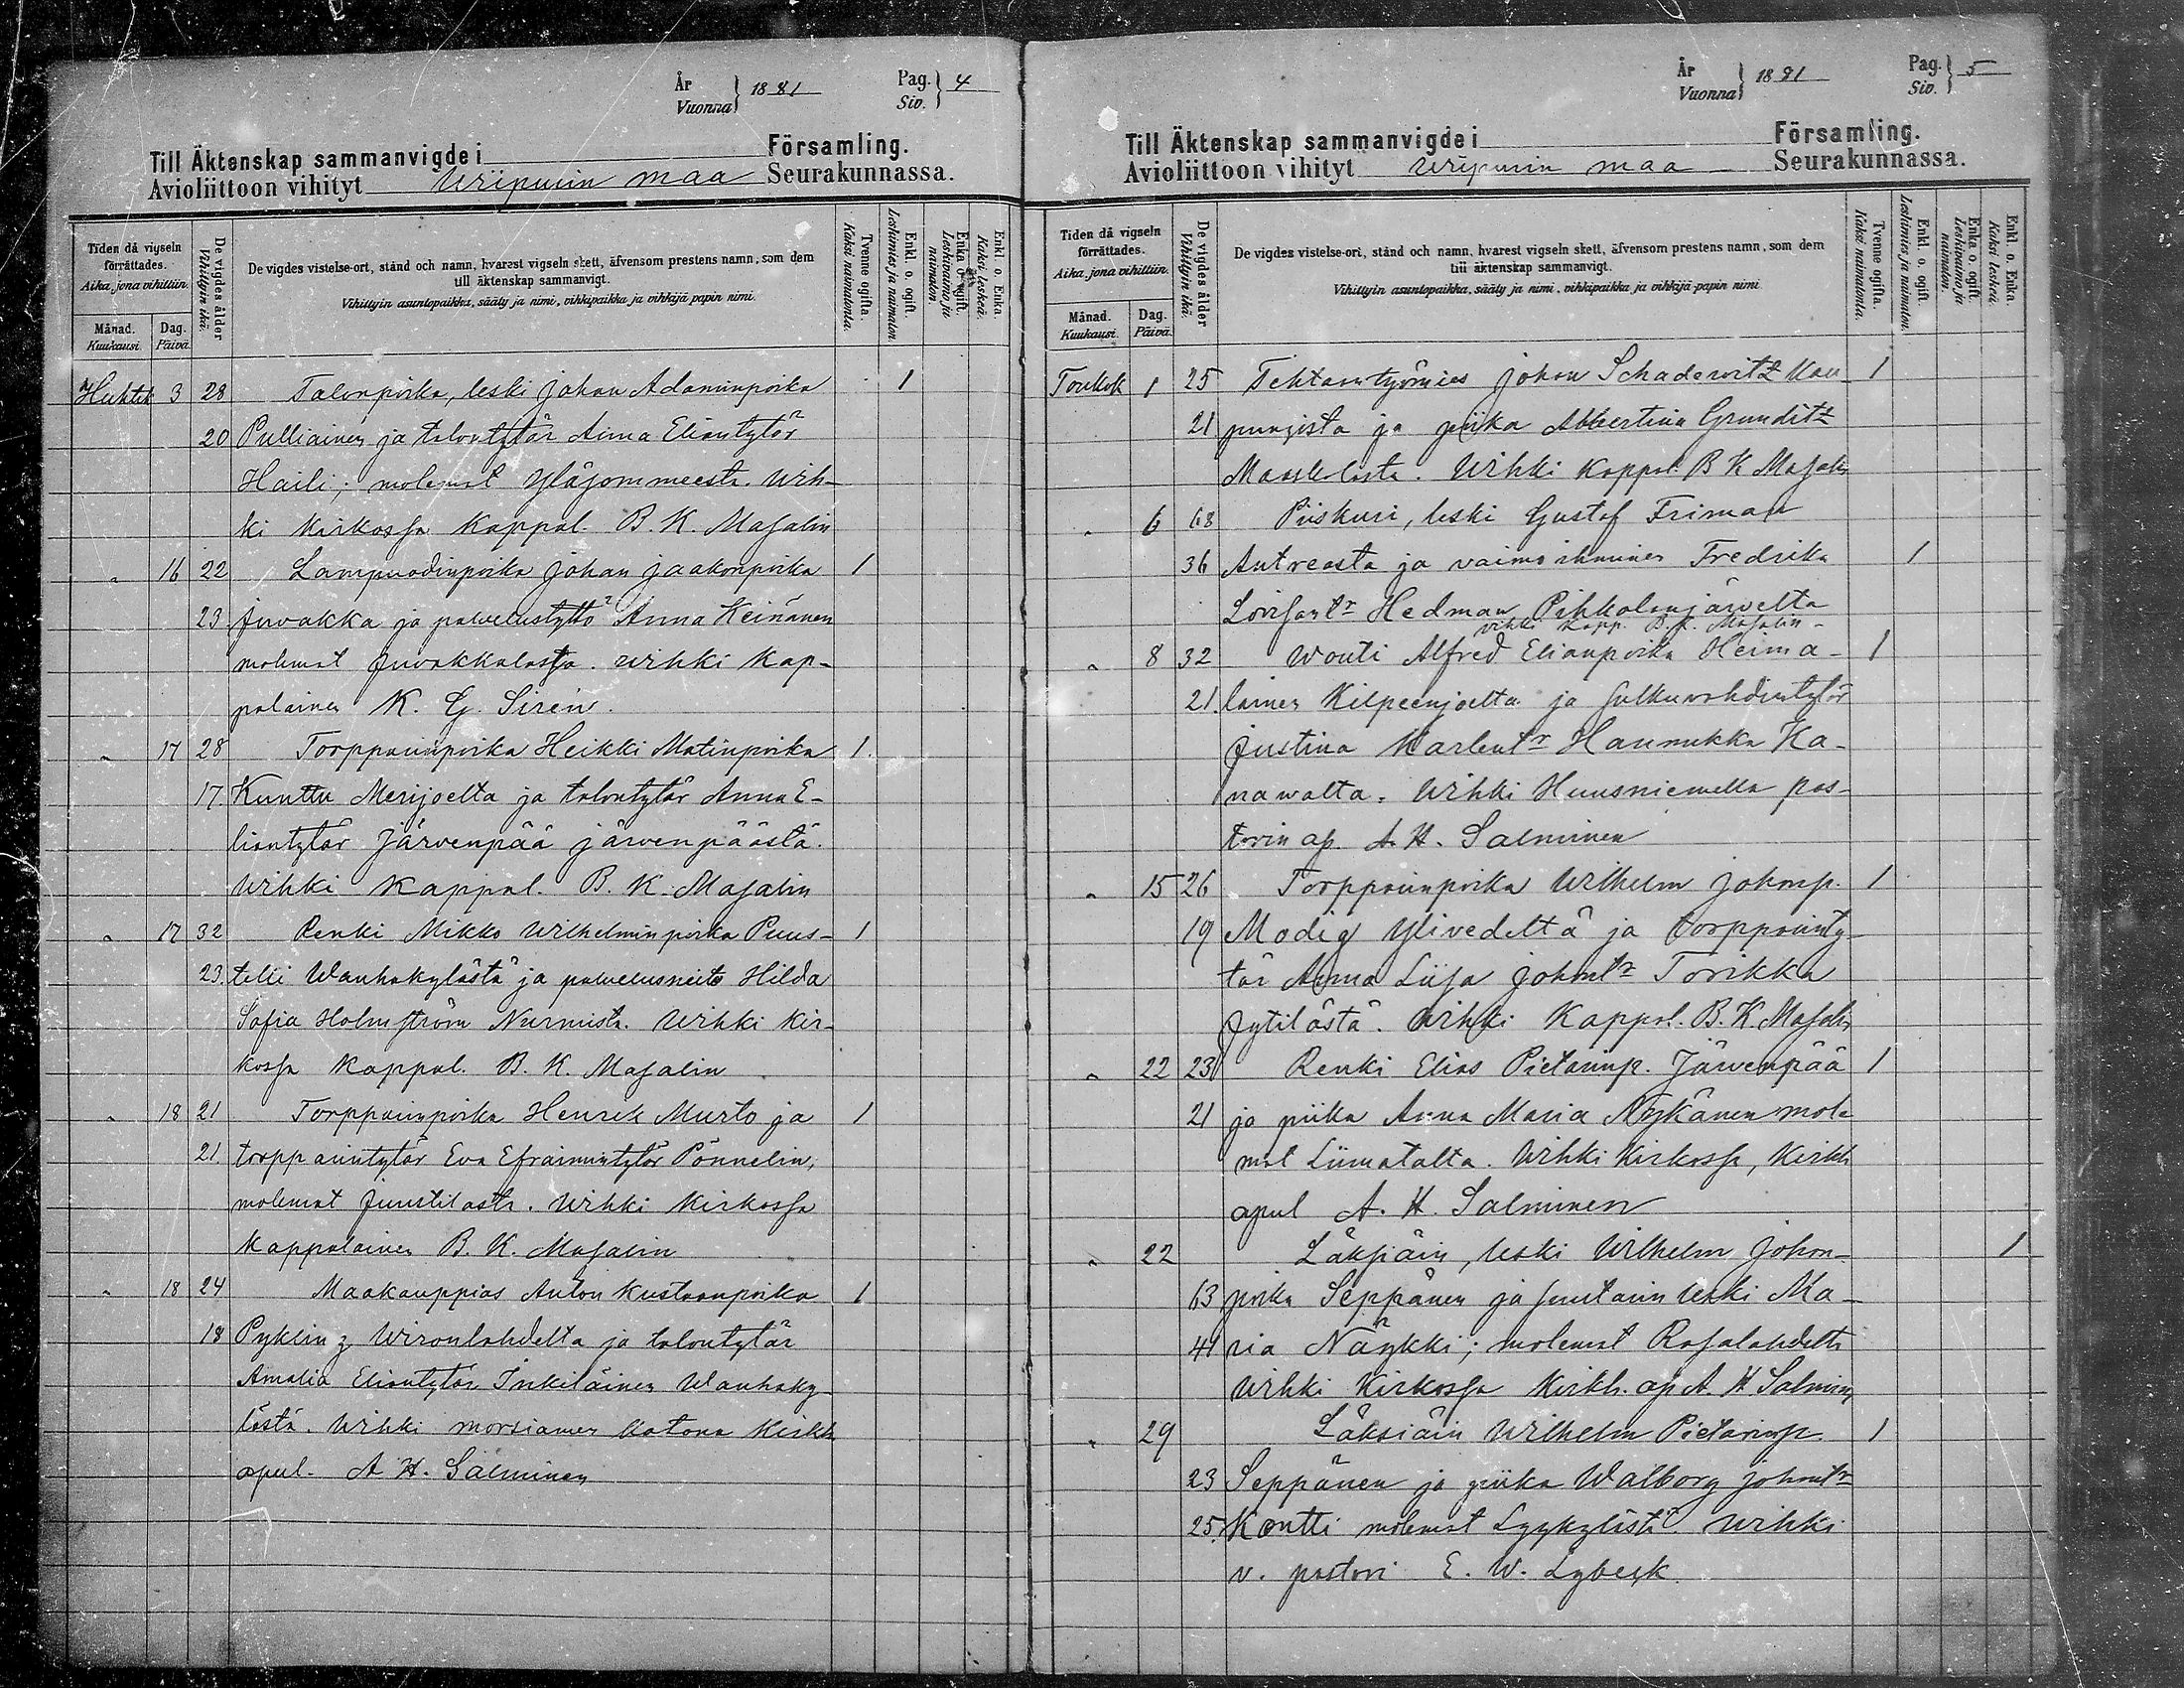 År
Vuonna } 1881
Pag.
Siv. } 4
Till Äktenskap sammanvigde i Församling.
Avioliittoon vihityt Wiipurin maa Seurakunnassa.
Tiden då vigseln förrättades.
Aika, jona vihittiin.
Månad. Kuukausi.
Dag. Päivä.
De vigdes ålder
Vihittyin ikä.
De vigdes vistelse-ort, stånd och namn, hvarest vigseln skett, äfvensom prestens namn, som dem
till äktenskap sammanvigt.
Vihittyin asuntopaikka, sääty ja nimi, vihkipaikka ja vihkijä papin nimi.
Tvenne ogifta.
Kaksi naimatonta.
Enkl. o. ogift.
Leskimies ja naimaton.
Enka o. ogift.
Leskivaimo ja naimaton.
Enkl. o. Enka.
Kaksi leskeä.
Huhtik 3 28 Talonpoika, leski Johan Adaminpoika 1
20 Pulliainen ja talontytär Anna Eliantytär
Haili; molemat Yläsommeesta. Wih-
ki kirkossa Kappal. B. K. Masalin
" 16 22 Lampuodinpoika Johan Jaakonpoika 1
23 Juvakka ja palvelustyttö Anna Keinänen
molemat Juvakkalasta. Wihki Kap-
palainen K. G. Sirén.
" 17 28 Torpparinpoika Heikki Matinpoika 1.
17. Kunttu Merijoelta ja talontytär Anna E-
liantytär Järvenpää Järvenpäästä.
Wihki Kappal. B. K. Masalin
" 17 32 Renki Mikko Wilhelminpoika Puus- 1
23. telli Wanhakylästä ja palvelusneito Hilda
Sofia Holmström Nurmista. Wihki kir-
kossa Kappal. B. K. Masalin
" 18 21 Torpparinpoika Henrik Murto ja 1
21. torpparintytär Eva Efraimintytär Pönnelin,
molemat Juustilasta. Wihki kirkossa
Kappalainen B. K. Masalin
" 18 24 Maakauppias Anton Kustaanpoika 1
18 Wironlahdelta ja talontytär
Amalia Eliantytär Inkiläinen Wanhaky-
lästä. Wihki morsiamen kotona Kirkh.
apul. A. H. Salminen
År
Vuonna } 1881
Pag.
Siv. } 5
Till Äktenskap sammanvigde i Församling.
Avioliittoon vihityt Wiipurin maa Seurakunnassa.
Tiden då vigseln förrättades.
Aika, jona vihittiin.
Månad. Kuukausi.
Dag. Päivä.
De vigdes ålder
Vihittyin ikä.
De vigdes vistelse-ort, stånd och namn, hvarest vigseln skett, äfvensom prestens namn, som dem
till äktenskap sammanvigt.
Vihittyin asuntopaikka, sääty ja nimi, vihkipaikka ja vihkijä papin nimi.
Tvenne ogifta.
Kaksi naimatonta.
Enkl. o. ogift.
Leskimies ja naimaton.
Enka o. ogift.
Leskivaimo ja naimaton.
Enkl. o. Enka.
Kaksi leskeä.
Toukok 1 25 Tehtaantyömies Johan Schadewitz Kau- 1
21 pungista ja piika Albertina Grunditz
Maaskolasta. Wihki Kappal. B K Masalin
" 6 68 Piiskuri, leski Gustaf Friman
36 Antreasta ja vaimo ihminen Fredrika 1
Lovisantr Hedman Pihkalanjärveltä
vihki Kapp. B. K. Masalin-
" 8 32 Wouti Alfred Elianpoika Heima- 1
21. lainen Kilpeenjoelta ja sulkuvahdintytär
Justina Karlentr Haunukka Ka-
nawalta. Wihki Huusniemellä pas-
torin ap. A. H. Salminen
" 15 26 Torpparinpoika Wilhelm Johanp. 1
19 Modig Ylivedeltä ja torpparinty-
tär Anna Liisa Johantr Torikka
Jytilästä. Wihki Kappal. B. K. Masalin
" 22 23 Renki Elias Pietarinp. Järvenpää 1
21 ja piika Anna Maria Nykänen mole
mat Liimatalta. Wihki kirkossa, Kirkh
apul A. H. Salminen
" 22 Läksiäin, leski Wilhelm Johan- 1
63 poika Seppänen ja leski Ma-
41 ria Näykki; molemat Rasalahdelta
Wihki Kirkossa Kirkh. ap A. H Salminen
" 29 Läksiäin Wilhelm Pietarinp. 1
23 Seppänen ja piika Walborg Johantr
25. Kontti molemat Lyykylästä. Wihki
v. pastori E. W. Lybeck